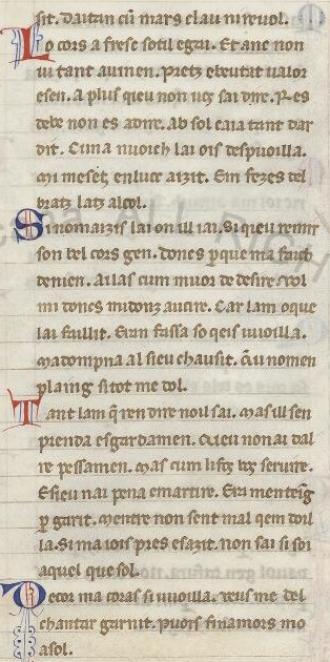 sit. Daitan cū mars clau ni revol.
Lo cors a fresc sotil e gai. Et anc non
vi tant avinen. Pretz e beutat valor
e sen. A plus qieu non vos sai dire. Res
de be non es a dire. Ab sol caia tant dar
dit. Cuna nuoich lai ois despuoilla.
Mi meses en luec aizit. Em fezes del
bratz latz al col.
Si nomaizis lai on ill iai. Si qeu remir
son bel cors gen. Dones per que ma faich
de nien. Ailas cum muor de desire. Vol
mi dones midonz aucire. Car lam o que
lai faillit. Eran fassa so qeis vuoilla.
Ma dompna al sieu chausit. Qu nomen
plaing sitot me dol.
Tant lam q̄ ren dire noil sai. Mas ill sen
prenda esgardamen. Qieu non ai dal
re pessamen. Mas cum li fos bos servire.
E sieu nai pena e martire. Era men teīg
p garit. Mentre non sent mal qem doil
la. Si ma iois pres e sazit. non sai si soi
aquel que sol.
De cor ma coras si vuoilla. Veus me del
chantar garnit. Puois finamors mo
asol.